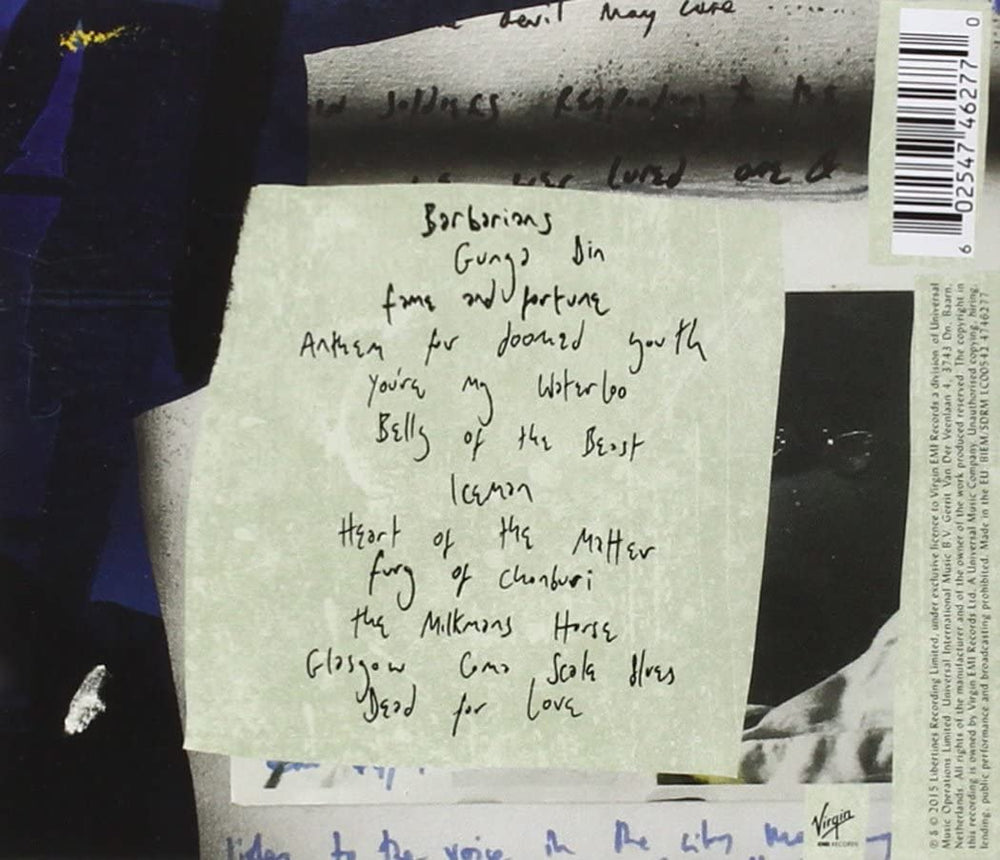 devil May Care
soldiers Responding to the
ever lured one &
Barbarians
Gunga Din
fame and fortune
Anthem for doomed youth
You're my Waterloo
Belly of the Beast
Iceman
Heart of the Matter
fury of Chonburi
the Milkmans Horse
Glasgow Coma Scale Blues
Dead for Love
listen to the voice in the city
Virgin
EMI RECORDS
6 02547 46277 0
℗ & © 2015 Libertines Recording Limited, under exclusive licence to Virgin EMI Records a division of Universal
Music Operations Limited. Universal International Music B.V. Gerrit Van Der Veenlaan 4, 3743 Dn, Baarn,
Netherlands. All rights of the manufacturer and of the owner of the work produced reserved. The copyright in
this recording is owned by Virgin EMI Records Ltd. A Universal Music Company. Unauthorised copying, hiring,
lending, public performance and broadcasting prohibited. Made in the EU. BIEM/SDRM LC00542 4746277